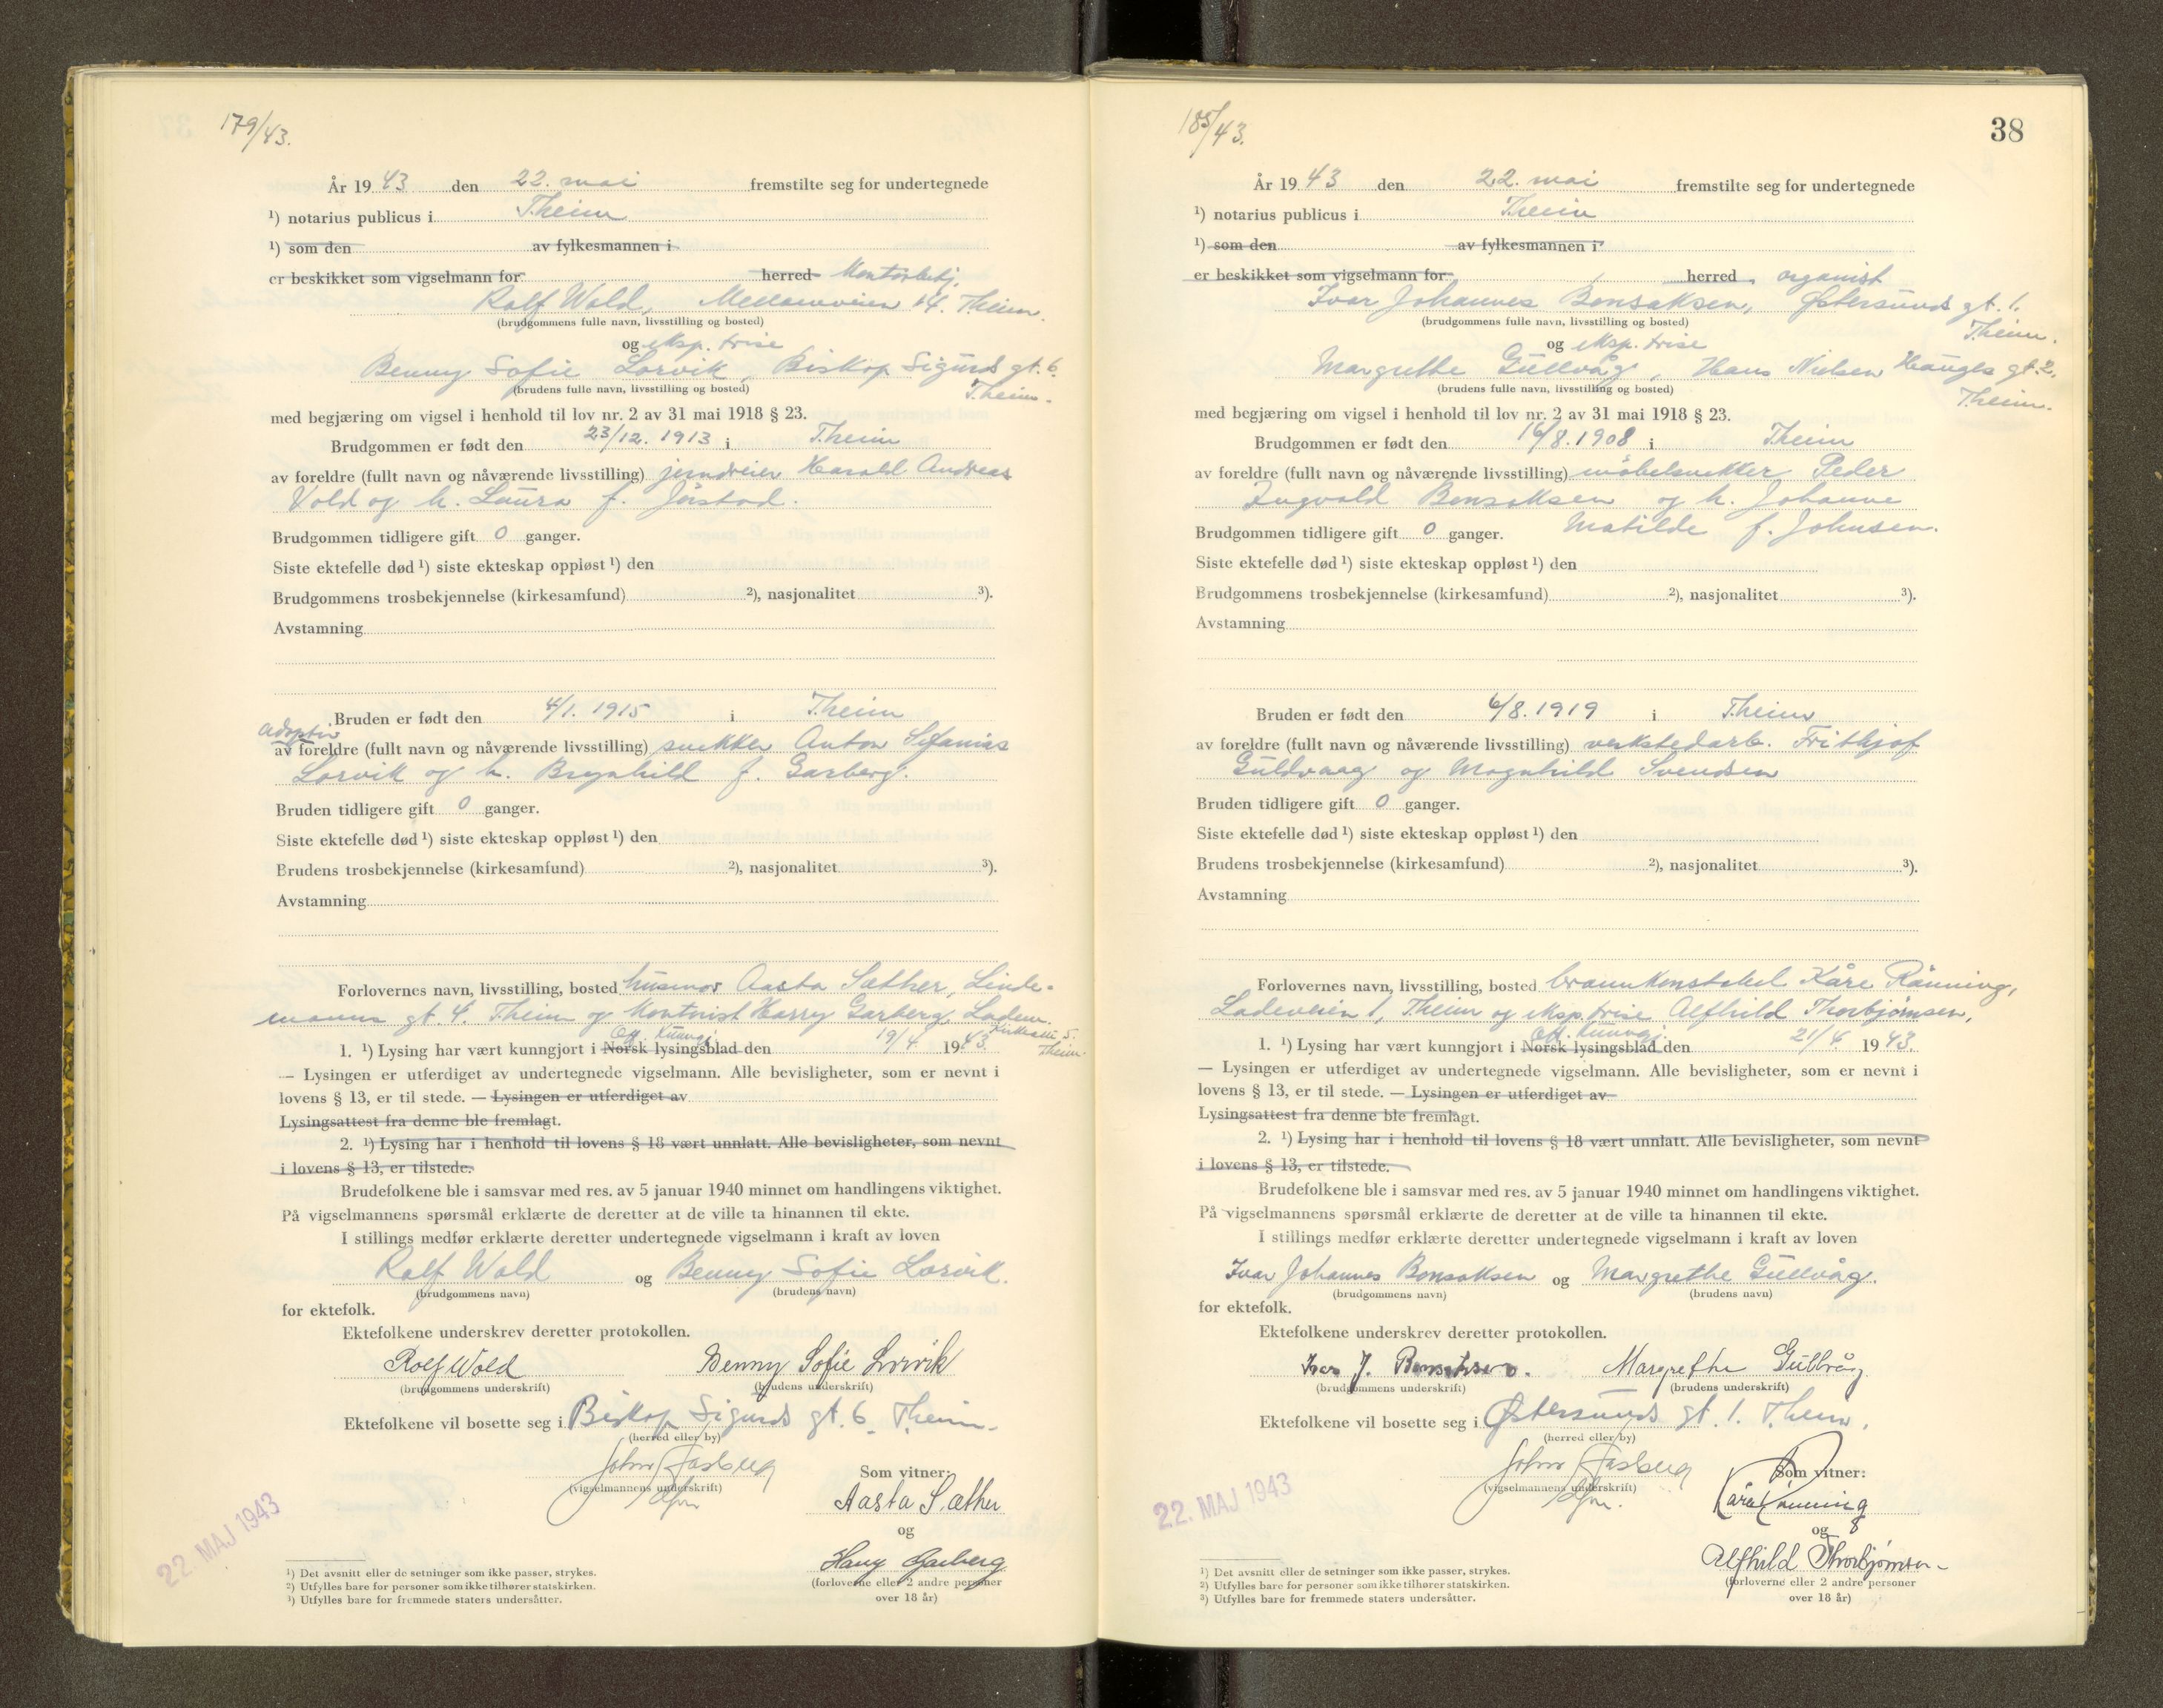 179/43.
År 1943 den 22. mai fremstilte seg for undertegnede
¹) notarius publicus i Theim
¹) som den av fylkesmannen i
er beskikket som vigselmann for herred Kontorbetj.
Rolf Wold, Mellomveien 14. Theim.
(brudgommens fulle navn, livsstilling og bosted)
og eksp. trise
Benny Sofie Lorvik, Biskop Sigurds gt. 6.
(brudens fulle navn, livsstilling og bosted) Theim.
med begjæring om vigsel i henhold til lov nr. 2 av 31 mai 1918 § 23.
Brudgommen er født den 23/12. 1913 i Theim
av foreldre (fullt navn og nåværende livsstilling) jerndreier Harald Andreas
Vold og h. Laura f. Jørstad.
Brudgommen tidligere gift 0 ganger.
Siste ektefelle død ¹) siste ekteskap oppløst ¹) den
Brudgommens trosbekjennelse (kirkesamfund) ²), nasjonalitet ³).
Avstamning
Bruden er født den 4/1. 1915 i Theim
adoptiv
av foreldre (fullt navn og nåværende livsstilling) snekker Anton Sefanias
Lorvik og h. Brynhild f. Garberg.
Bruden tidligere gift 0 ganger.
Siste ektefelle død ¹) siste ekteskap oppløst ¹) den
Brudens trosbekjennelse (kirkesamfund) ²), nasjonalitet ³).
Avstamning
Forlovernes navn, livsstilling, bosted husmor Aasta Sæther, Linde-
manns gt. 4. Theim og kontorist Harry Garberg, Ladem.
Off. Kunngj. Kirkealle 5. Theim.
1. ¹) Lysing har vært kunngjort i Norsk lysingsblad den 19/4 1943.
— Lysingen er utferdiget av undertegnede vigselmann. Alle bevisligheter, som er nevnt i
lovens § 13, er til stede. — Lysingen er utferdiget av
Lysingsattest fra denne ble fremlagt.
2. ¹) Lysing har i henhold til lovens § 18 vært unnlatt. Alle bevisligheter, som nevnt
i lovens § 13, er tilstede.
Brudefolkene ble i samsvar med res. av 5 januar 1940 minnet om handlingens viktighet.
På vigselmannens spørsmål erklærte de deretter at de ville ta hinannen til ekte.
I stillings medfør erklærte deretter undertegnede vigselmann i kraft av loven
Rolf Wold og Benny Sofie Lorvik.
(brudgommens navn) (brudens navn)
for ektefolk.
Ektefolkene underskrev deretter protokollen.
Rolf Wold Benny Sofie Lorvik
(brudgommens underskrift) (brudens underskrift)
Ektefolkene vil bosette seg i Biskop Sigurds gt. 6 Theim.
(herred eller by)
(vigselmannens underskrift)
Som vitner:
Aasta Sæther
og
Harry Garberg
(forloverne eller 2 andre personer
over 18 år)
22. MAJ 1943
¹) Det avsnitt eller de setninger som ikke passer, strykes.
²) Utfylles bare for personer som ikke tilhører statskirken.
³) Utfylles bare for fremmede staters undersåtter.
185/43.
38
År 1943 den 22. mai fremstilte seg for undertegnede
¹) notarius publicus i Theim
¹) som den av fylkesmannen i
er beskikket som vigselmann for herred organist
Ivar Johannes Bonsaksen, Østersunds gt. 1.
(brudgommens fulle navn, livsstilling og bosted) Theim.
og eksp. trise
Margrethe Gullvåg, Hans Nielsen Hauges gt. 2.
(brudens fulle navn, livsstilling og bosted) Theim.
med begjæring om vigsel i henhold til lov nr. 2 av 31 mai 1918 § 23.
Brudgommen er født den 16/8. 1908 i Theim
av foreldre (fullt navn og nåværende livsstilling) møbelsnekker Peder
Ingvald Bonsaksen og h. Johanne
Brudgommen tidligere gift 0 ganger. Matilde f. Johnsen.
Siste ektefelle død ¹) siste ekteskap oppløst ¹) den
Brudgommens trosbekjennelse (kirkesamfund) ²), nasjonalitet ³).
Avstamning
Bruden er født den 6/8. 1919 i Theim
av foreldre (fullt navn og nåværende livsstilling) verkstedarb. Frithjof
Guldvaag og Magnhild Svendsen
Bruden tidligere gift 0 ganger.
Siste ektefelle død ¹) siste ekteskap oppløst ¹) den
Brudens trosbekjennelse (kirkesamfund) ²), nasjonalitet ³).
Avstamning
Forlovernes navn, livsstilling, bosted brannkonstabel Kåre Rønning,
Ladeveien 1, Theim og eksp. trise Alfhild Thorbjørnsen,
Off. Kunngj.
1. ¹) Lysing har vært kunngjort i Norsk lysingsblad den 21/4 1943.
— Lysingen er utferdiget av undertegnede vigselmann. Alle bevisligheter, som er nevnt i
lovens § 13, er til stede. — Lysingen er utferdiget av
Lysingsattest fra denne ble fremlagt.
2. ¹) Lysing har i henhold til lovens § 18 vært unnlatt. Alle bevisligheter, som nevnt
i lovens § 13, er tilstede.
Brudefolkene ble i samsvar med res. av 5 januar 1940 minnet om handlingens viktighet.
På vigselmannens spørsmål erklærte de deretter at de ville ta hinannen til ekte.
I stillings medfør erklærte deretter undertegnede vigselmann i kraft av loven
Ivar Johannes Bonsaksen og Margrethe Gullvåg.
(brudgommens navn) (brudens navn)
for ektefolk.
Ektefolkene underskrev deretter protokollen.
Ivar J. Bonsaksen. Margrethe Gullvåg
(brudgommens underskrift) (brudens underskrift)
Ektefolkene vil bosette seg i Østersunds gt. 1. Theim.
(herred eller by)
(vigselmannens underskrift)
Som vitner:
Kåre Rønning
og
Alfhild Thorbjørnsen
(forloverne eller 2 andre personer
over 18 år)
22. MAJ 1943
¹) Det avsnitt eller de setninger som ikke passer, strykes.
²) Utfylles bare for personer som ikke tilhører statskirken.
³) Utfylles bare for fremmede staters undersåtter.